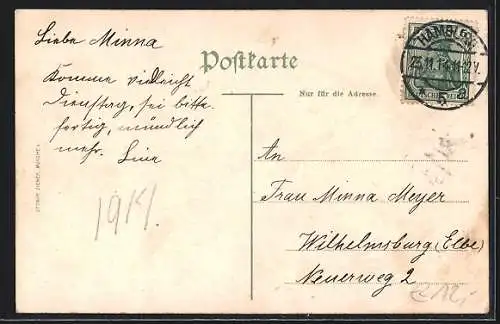 Liebe Minna
Komme vielleicht
Dienstag, sei bitte
fertig, mündlich
mehr. Line
1914.
Postkarte
Nur für die Adresse
HAMBURG
An
Frau Minna Meyer
Wilhelmsburg (Elbe)
Neuerweg 2